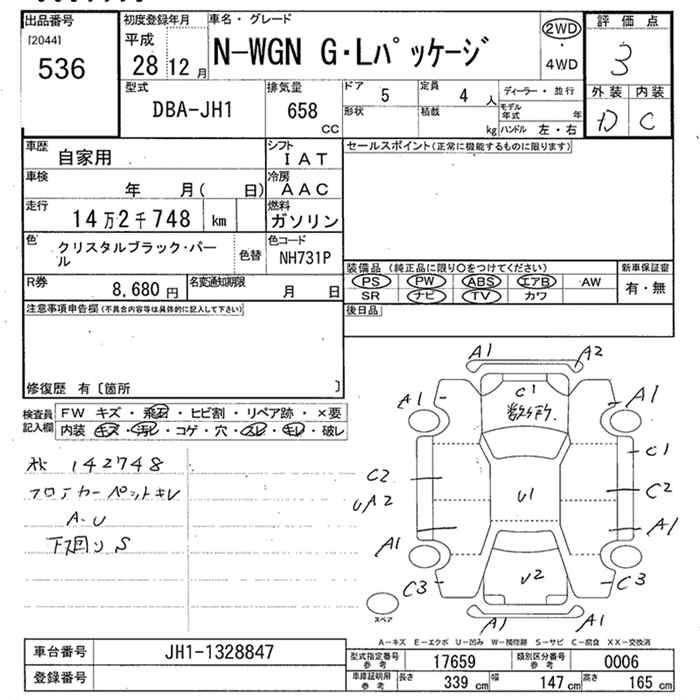 出品番号
[2044]
536
初度登録年月
平成
28 12 月
車名・グレード
N-WGN G・Lパッケージ
2WD
・
4WD
評価点
3
外装 内装
D C
型式
DBA-JH1
排気量
658
CC
ドア
5
定員
4 人
ディーラー・並行
形状
積載
kg
モデル年式
年
ハンドル 左・右
車歴
自家用
シフト
IAT
車検
年 月( 日)
冷房
AAC
走行
14万2千748 km
燃料
ガソリン
色
クリスタルブラック・パール
色替
色コード
NH731P
R券
8,680 円
名変通知期限
月 日
セールスポイント(正常に機能するものに限ります)
装備品(純正品に限り○をつけてください)
新車保証書
PS PW ABS エアB AW
SR ナビ TV カワ
有・無
後日品
注意事項申告欄(不具合内容等は具体的に記入して下さい)
修復歴 有〔箇所 〕
検査員記入欄
FW キズ・飛石・ヒビ割・リペア跡・×要
内装 キズ・汚レ・コゲ・穴・スレ・キレ・破レ
142748
フロアカーペットキレ
A-U
下廻り S
A1 A2
C1
A1 A1
C1
C2 C2
UA2
U1
A1 A1
U2
C3 C3
A1 A1
スペア
A－キズ E－エクボ U－凹み W－補修跡 S－サビ C－腐食 XX－交換済
車台番号
JH1-1328847
登録番号
型式指定番号
参考
17659
類別区分番号
参考
0006
車庫証明用
参考
長さ
339 cm
幅
147 cm
高さ
165 cm